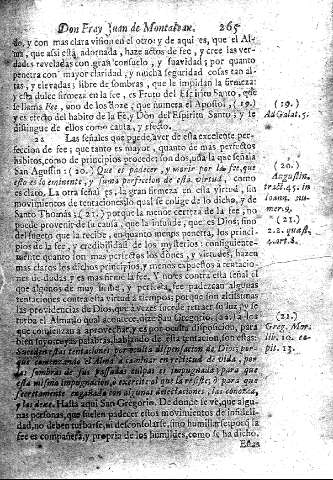 Don Fray Juan de Montalvan. 265
do, y con mas clara viſion en el otro; y de aqui es, que el Al-
ma, que aſsi eſtà adornada, haze actos de fee, y cree las ver-
dades reveladas con gran conſuelo, y ſuavidad; por quanto
penetra con mayor claridad, y mucha ſeguridad coſas tan al-
tas, y elevadas; libre de ſombras, que la impidan la firmeza:
y eſta dulce firmeza en la fee, es Fruto del Eſpiritu Santo, que
ſe llama Fee, uno de los doze, que numera el Apoſtol, (19.)
y es efecto del habito de la Fè, y Don del Eſpiritu Santo; y ſe
diſtingue de ellos como cauſa, y efecto.
22 Las ſeñales que puede aver de eſta excelente per-
feccion de fee; que tanto es mayor, quanto de mas perfectos
habitos, como de principios procede; ſon dos, una la que ſeñala
San Aguſtin: (20.) Que es padecer, y morir por la fee, que
eſto es lo eminente, y ſuma perfeccion de eſta virtud, como
es claro. La otra ſeñal es, la gran firmeza en eſta virtud, ſin
movimientos de tentaciones, lo qual ſe colige de lo dicho, y de
Santo Thomàs; (21.) porque la menor certeza de la fee, no
puede provenir de la cauſa, que la infunde, que es Dios, ſino
del ſugeto que la recibe, en quanto menos penetra, los princi-
pios de la fee, y credibilidad de los myſterios: conſiguiente-
mente quanto ſon mas perfectos los dones, y virtudes, hazen
mas claros los dichos principios, y menos expueſtos à tentacio-
nes de dudas, y es mas firme la fee. Y no es contra eſta ſeñal el
que algunos de muy firme, y perfecta fee padezcan algunas
tentaciones contra eſta virtud à tiempos; porque ſon altiſsimas
las providencias de Dios, que à vezes ſucede retraer ſu luz, y ſe
turba el Alma; lo qual acontece, dize San Gregorio, (22.) à los
que comienzan à aprovechar, y es por oculta diſpoſicion, para
bien ſuyo: cuyas palabras, hablando de eſta tentacion, ſon eſtas:
Suceden eſtas tentaciones por oculta diſpenſacion de Dios, por-
que comenzando el Alma à caminar en rectitud de vida, por
las ſombras de ſus paſſadas culpas es impugnada; para que
eſta miſma impugnacion, ò exercite al que la reſiſte; ò para que
ſecretamente engañado con algunas delectaciones, las conozca,
y las dexe. Haſta aqui San Gregorio. De donde ſe vè, que algu-
nas perſonas, que ſuelen padecer eſtos movimientos de infideli-
dad, no deben turbarſe, ni deſconſolarſe, ſino humillarſe; porq̃ la
fee es compañera, y propria de los humildes, como ſe ha dicho.
Eſtas
(19.)
Ad Galat. 5.
(20.)
Auguſtin.
tract. 45. in
Ioann. nu-
mer. 9.
(21.)
2.2. quæſt.
4. art. 8.
(21.)
Greg. Mor.
lib. 10. ca-
pit. 13.